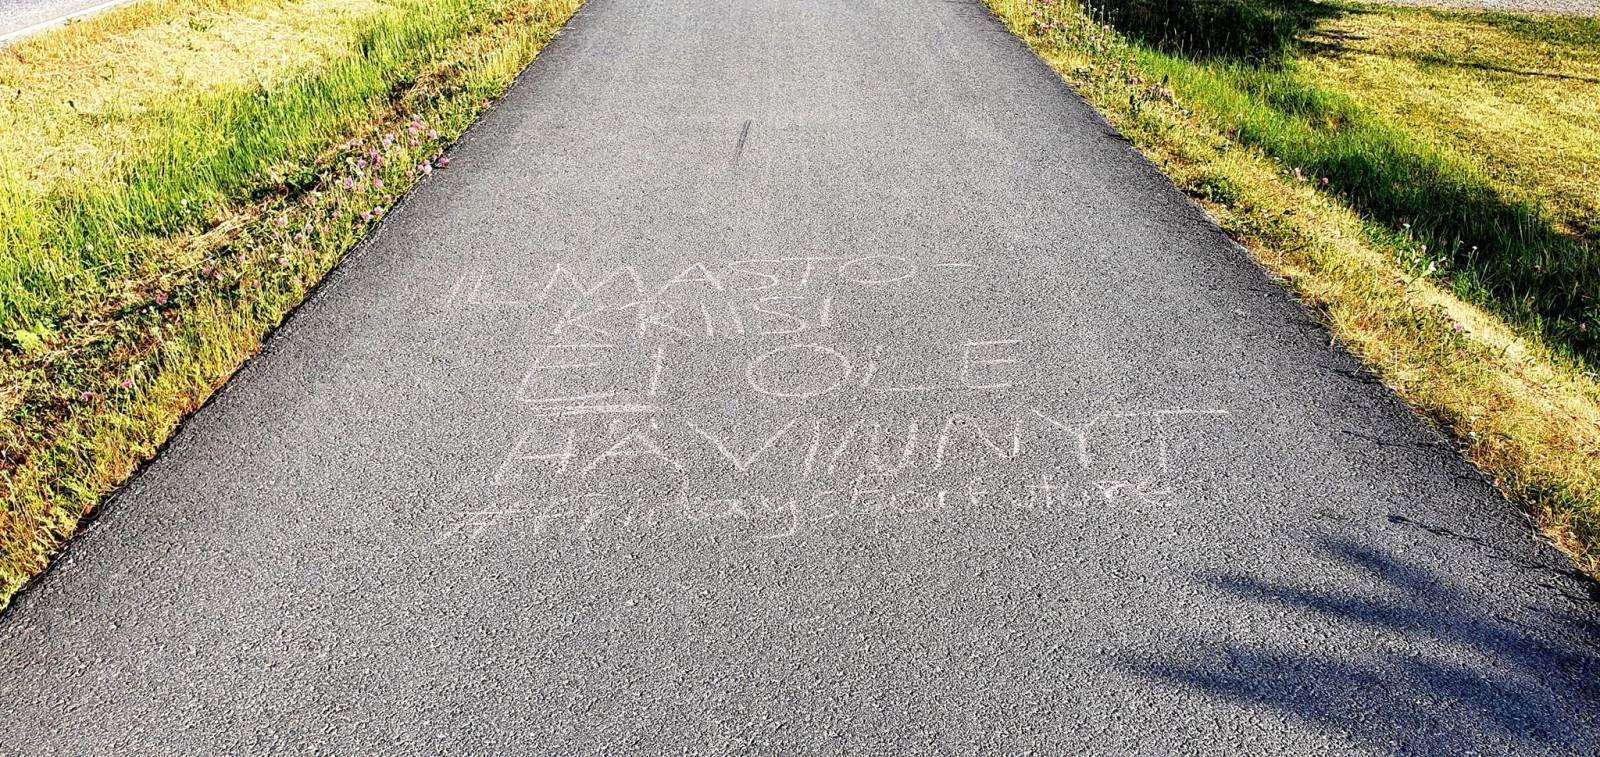 ILMASTO-
KRIISI
EI OLE
HÄVINNYT
#Fridaysforfuture